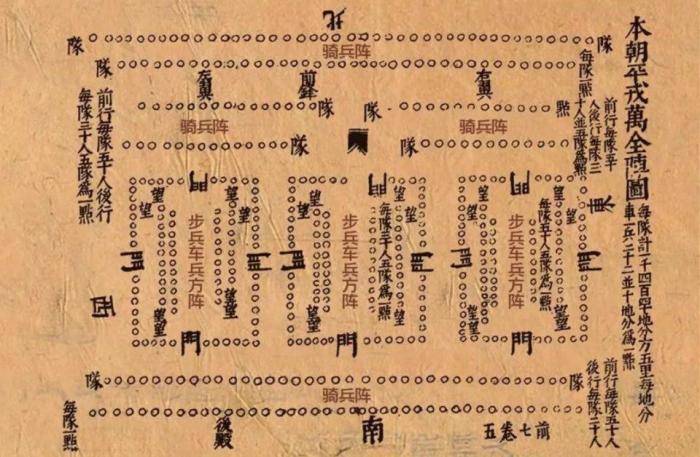 本朝平戎萬全陣圖
北
隊
騎兵阵
隊
隊
左翼
前鋒
右翼
前行每隊五十
人後行每隊三
十人並五隊為一點
隊
隊
點
骑兵阵
骑兵阵
隊
隊
前行每隊五十人後行
每隊三十人五隊為一點
東
每隊計一千四百四十地分方五里每地分
門
門
門
望
望
望
望
望
望
望
望
步兵车兵方阵
步兵车兵方阵
步兵车兵方阵
每隊三十人五隊為一點
每隊五十人五隊為一點
門
門
門
門
門
門
西
望
望
望
望
望
望
門
門
門
隊
隊
骑兵阵
前行每隊五十人
後行每隊三十人
每隊一點
後殿
南
前七卷五